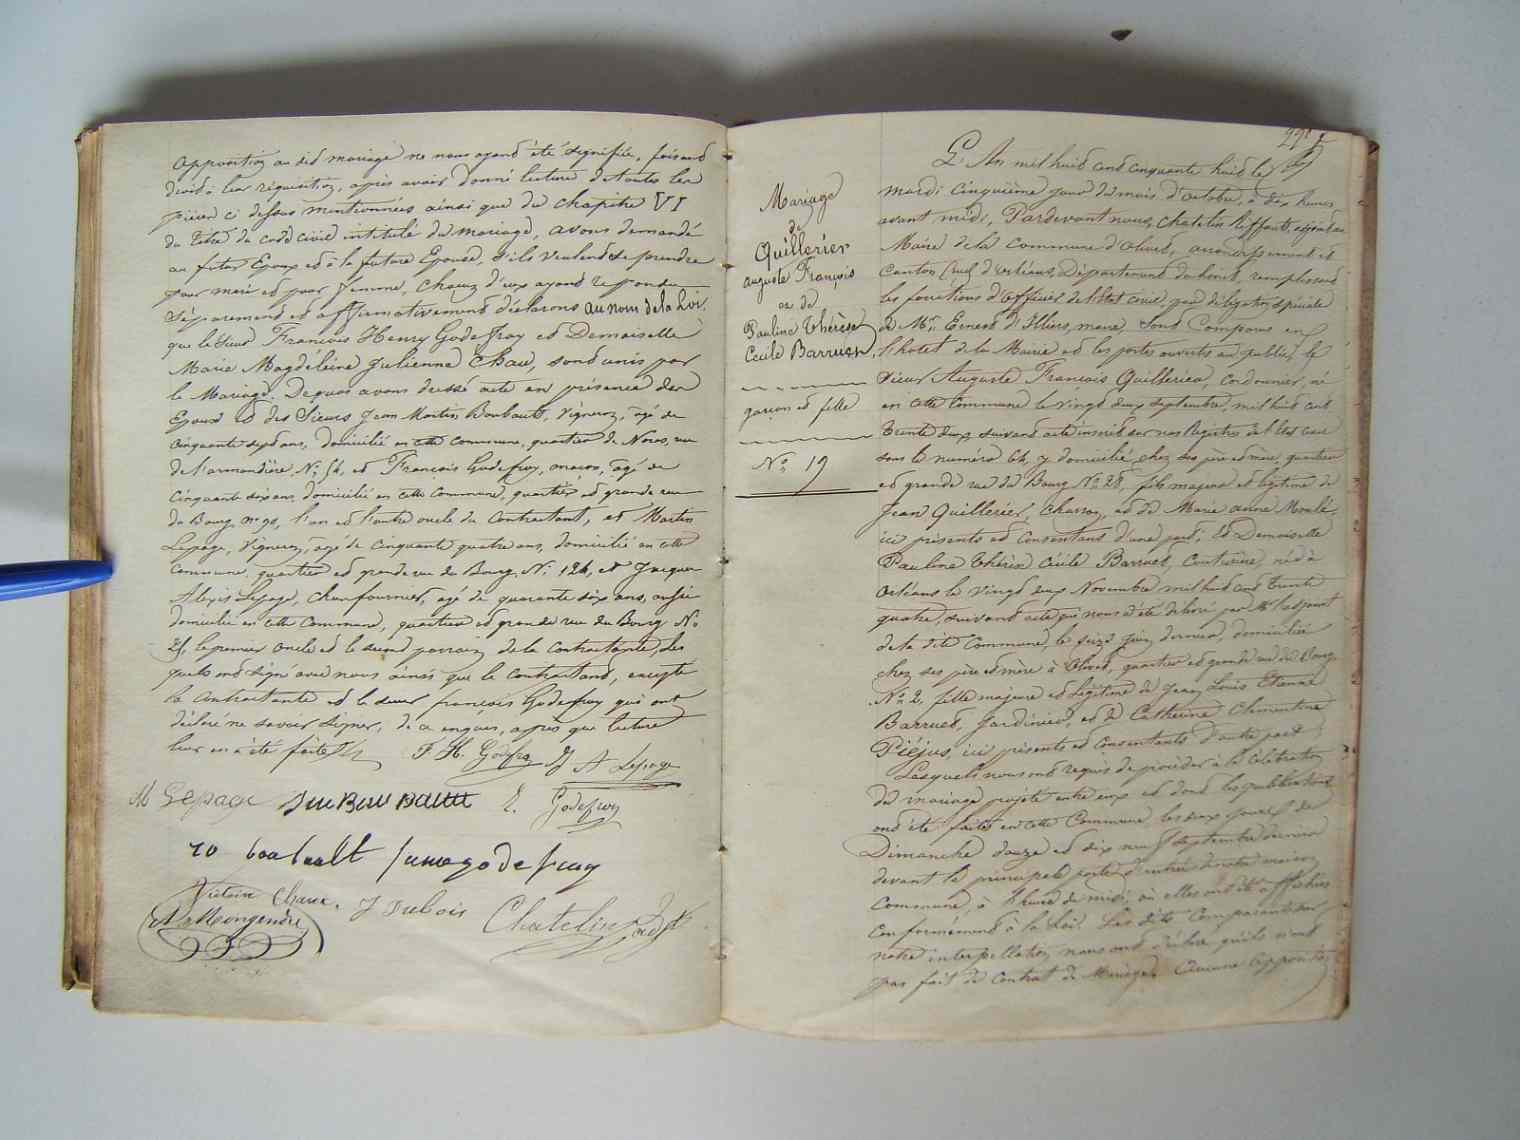 opposition au dit mariage ne nous ayant été signifiée, faisant
droit à leur réquisition, après avoir donné lecture de toutes les
pièces ci dessus mentionnées ainsi que du chapitre VI
du titre du code civil intitulé du mariage, avons demandé
au futur Epoux et à la future Epouse, s'ils veulent se prendre
pour mari et pour femme, chacun d'eux ayant répondu
séparément et affirmativement déclarons au nom de la Loi,
que le Sieur François Henry Godeffroy et Demoiselle
Marie Magdéleine Julienne Chau, sont unis par
le Mariage. De quoi avons dressé acte en présence des
Epoux et des Sieurs Jean Martin Boubault, Vigneron, agé de
cinquante sept ans, domicilié en cette commune, quartier de Noras, rue
de l'armandière No 54, et François Godefroy, maçon, agé de
cinquante six ans, domicilié en cette Commune, quartier et grande rue
du Bourg no 90, l'un et l'autre oncle du Contractant, et Martin
Lepage, Vigneron, agé de cinquante quatre ans, domicilié en cette
commune, quartier et grande rue du Bourg No 124, et Jacques
Alexis Lepage, chaufournier, agé de quarante six ans, aussi
domicilié en cette Commune, quartier et grande rue du Bourg No
25, le premier oncle et le second parrain de la contractante, les
quels ont signé avec nous ainsi que le contractant, excepté
la Contractante et le sieur françois Godefroy qui ont
déclaré ne savoir signer, de ce enquis, après que lecture
leur en a été faite
F. H. Godefroy J A Lepage
M Lepage E. Godefroy
boubault
Victoire Chaux. J Dubois Chatelin
A. Mongendre
Mariage
de
Quillerier
auguste François
et de
Pauline Thérèse
Cécile Barruet
garçon et fille
No 19
L'An mil huit cent cinquante huit le
mardi cinquième jour du mois d'octobre, à dix heures
avant midi, Pardevant nous, Chatelin Riffault, adjoint au
Maire de la Commune d'Olivet, arrondissement et
Canton Sud d'Orléans, Département du Loiret, remplissant
les fonctions d'officier de l'Etat civil, par délégation spéciale
de Mr. Ernest d'Illiers, maire, Sont Comparus en
l'hotel de la Mairie et les portes ouvertes au public, le
Sieur Auguste François Quillerier, Cordonnier, né
en cette Commune le vingt deux septembre, mil huit cent
trente deux, suivant acte inscrit sur nos Registres de l'Etat civil
sous le numéro 64, y domicilié, chez ses père et mère, quartier
et grande rue du Bourg No 28, fils majeur et légitime de
Jean Quillerier, charron, et de Marie anne Moulé,
ici présents et consentans d'une part; Et Demoiselle
Pauline Thérèse Cécile Barruet, Couturière, née à
Orléans le vingt deux Novembre mil huit cent trente
quatre, suivant acte qui nous a été délivré par Mr l'adjoint
de la dite Commune, le seize Juin dernier, domiciliée
chez ses père et mère à Olivet, quartier et grande rue du Bourg
No 2, fille majeure et légitime de Jean Louis Etienne
Barruet, Jardinier, et de Catherine Clementine
Piéjus, ici présents et Consentants d'autre part;
Lesquels nous ont requis de procéder à la célébration
du mariage projeté entre eux et dont les publications
ont été faites en cette Commune les deux jours de
Dimanche douze et dix neuf septembre dernier
devant la principale porte d'entrée de notre maison
Commune, à l'heure de midi, où elles ont été affichées
conformément à la loi. Les dits comparants sur
notre interpellation nous ont déclaré qu'ils n'ont
pas fait de contrat de Mariage. Aucune opposition